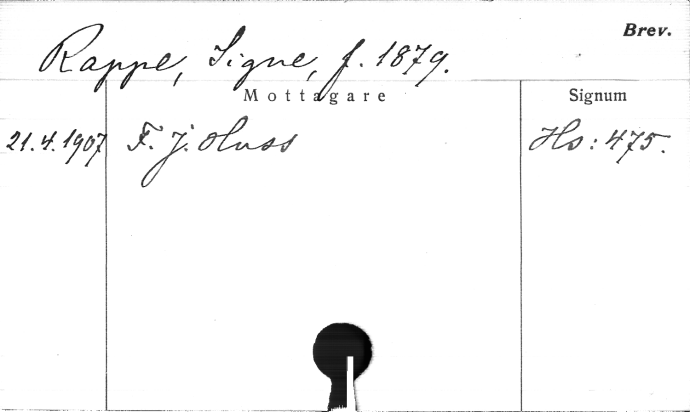 Brev.
Rappe, Signe, f. 1879.
Mottagare Signum
21.4.1907 F. J. Huss Hs: 475.